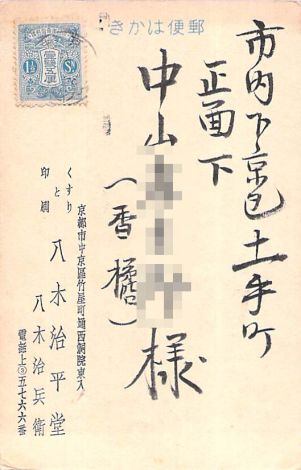 郵便はかき
市内下京区土手町
正面下
中山
様
(香橘)
京都市中京區竹屋町通西洞院東入
くすりと印刷
八木治平堂
八木治兵衛
電話上③五七六六番
1½ Sn